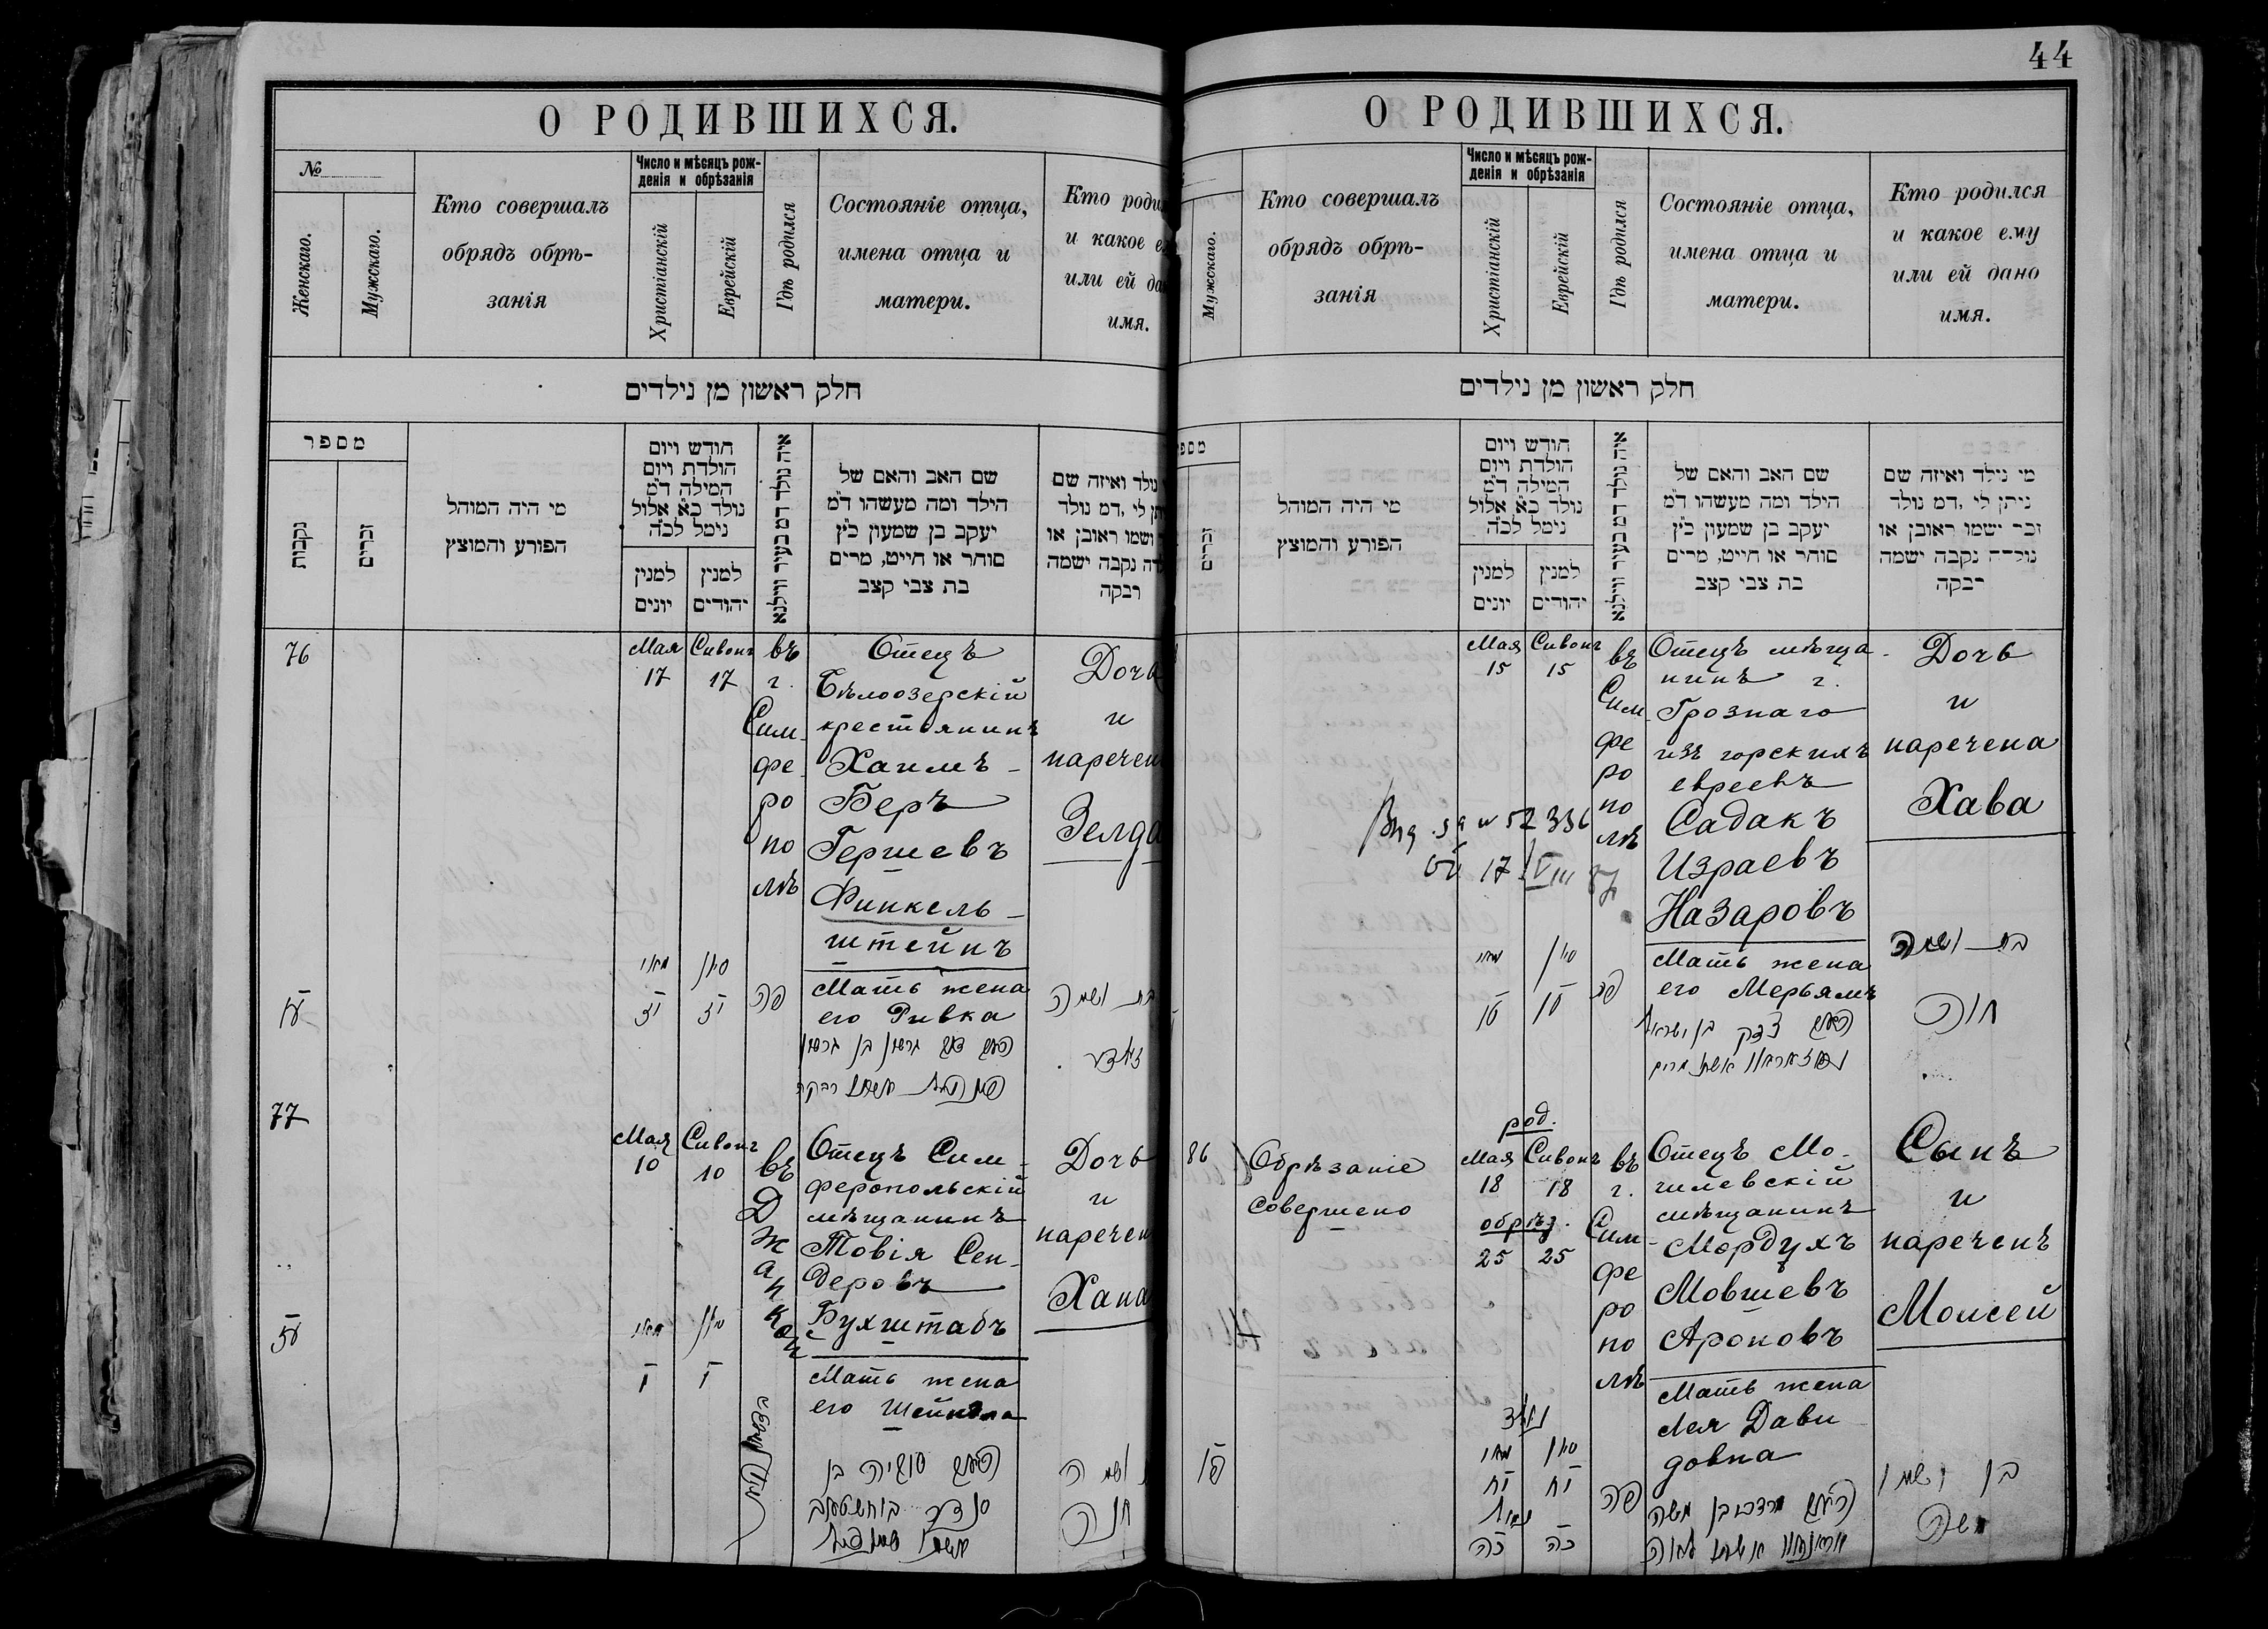 О РОДИВШИХСЯ.
№
Женскаго.
Мужскаго.
Кто совершалъ
обрядъ обрѣ-
занія
Число и мѣсяцъ рож-
денія и обрѣзанія
Христіанскій
Еврейскій
Гдѣ родился
Состояніе отца,
имена отца и
матери.
Кто роди
и какое е
или ей да
имя.
חלק ראשון מן נילדים
מספר
נקבות
זכרים
מי היה המוהל
הפורע והמוצץ
חודש ויום
הולדת ויום
המילה ד"מ
נולד כ"א אלול
נימל לכ"ה
למנין
יונים
למנין
יהודים
איה נולד דמ בעיר ווילנא
שם האב והאם של
הילד ומה מעשהו ד"מ
יעקב בן שמעון כ"ץ
סוחר או חייט, מרים
בת צבי קצב
נולד ואיזה שם
תן לי ,דמ נולד
ושמו ראובן או
דה נקבה ישמה
רבקה
76
Мая
17
Сивонъ
17
въ
г.
Сим-
фе-
ро
по
лѣ
Отецъ
Бѣлоозерскій
крестьянинъ
Хаимъ-
Беръ
Гершевъ
Финкель-
штейнъ
Мать жена
его Ривка
Дочь
и
наречен
Зелда
מאי
סיון
פה
רבקה
77
Мая
10
Сивонъ
10
въ
Д
ж
а
н
к
о
и
Отецъ Сим-
феропольскій
мѣщанинъ
Товія Сен-
деровъ
Бухштабъ
Мать жена
его Шейндла
Дочь
и
наречен
Хана
מאי
סיון
י
י
חנה
44
О РОДИВШИХСЯ.
Мужскаго.
Кто совершалъ
обрядъ обрѣ-
занія
Число и мѣсяцъ рож-
денія и обрѣзанія
Христіанскій
Еврейскій
Гдѣ родился
Состояніе отца,
имена отца и
матери.
Кто родился
и какое ему
или ей дано
имя.
חלק ראשון מן נילדים
מספ
זכרים
מי היה המוהל
הפורע והמוצץ
חודש ויום
הולדת ויום
המילה ד"מ
נולד כ"א אלול
נימל לכ"ה
למנין
יונים
למנין
יהודים
איה נולד דמ בעיר ווילנא
שם האב והאם של
הילד ומה מעשהו ד"מ
יעקב בן שמעון כ"ץ
סוחר או חייט, מרים
בת צבי קצב
מי נילד ואיזה שם
ניתן לי ,דמ נולד
זכר ישמו ראובן או
נולדה נקבה ישמה
רבקה
Мая
15
Сивонъ
15
въ
Сим-
фе
ро
по
лѣ
Отецъ мѣща-
нинъ г.
Грознаго
изъ горскихъ
евреевъ
Садакъ
Израевъ
Назаровъ
Мать жена
его Мерьямъ
Дочь
и
наречена
Хава
17/VIII
מאי
סיון
פה
בת ושמה
חוה
86
Обрѣзаніе
совершено
род.
Мая
18
Сивонъ
18
обрѣз.
25
25
въ
г.
Сим-
фе
ро
по
лѣ
Отецъ Мо-
гилевскій
мѣщанинъ
Мордухъ
Мовшевъ
Ароновъ
Мать жена
Лея Дави
довна
Сынъ
и
нареченъ
Моисей
פו
נולד
מאי
סיון
יח
יח
כה
כה
פה
מרדכי בן משה
בן ושמו
משה